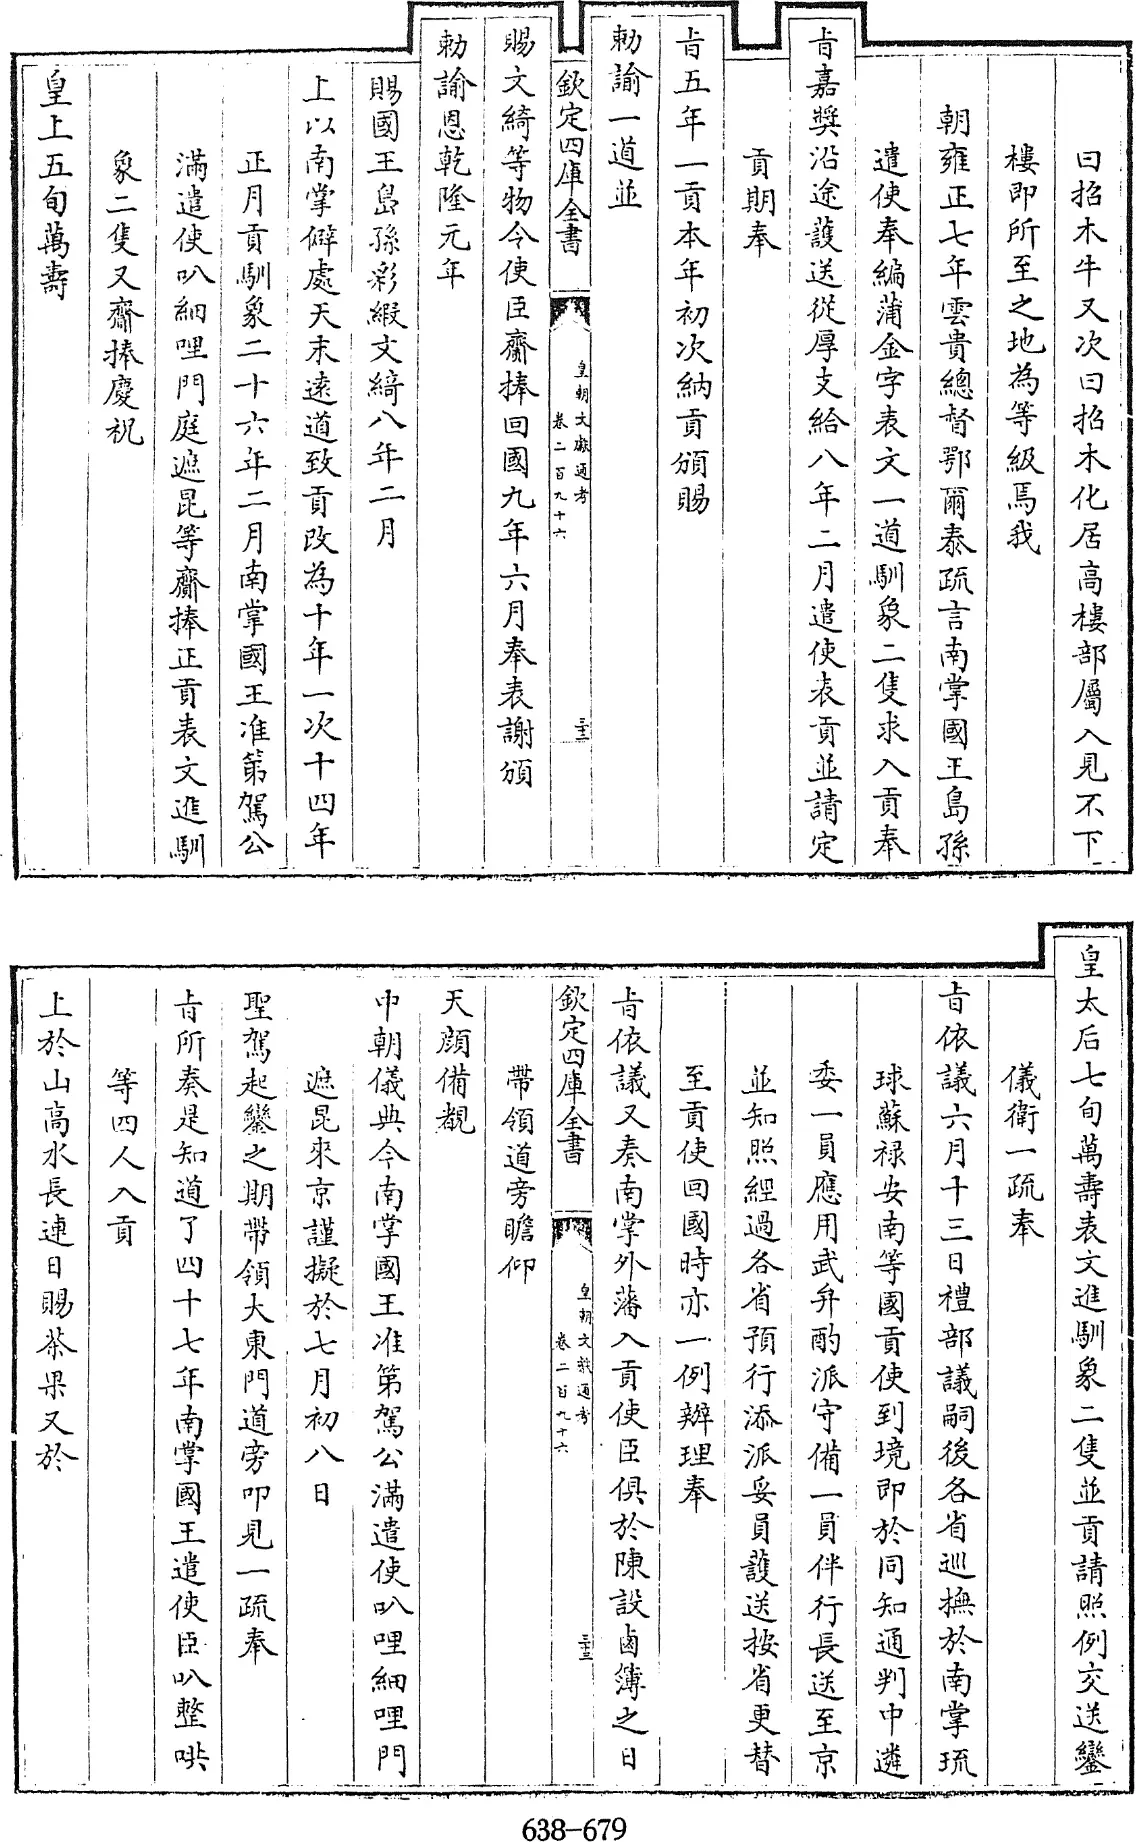 曰招木牛又次曰招木化居高樓部屬入見不下
樓即所至之地為等級焉我
朝雍正七年雲貴總督鄂爾泰疏言南掌國王島孫
遣使奉編蒲金字表文一道馴象二隻求入貢奉
旨嘉獎沿途護送從厚支給八年二月遣使表貢並請定
貢期奉
旨五年一貢本年初次納貢頒賜
勅諭一道並
欽定四庫全書
皇朝文獻通考
卷二百九十六
三十二
賜文綺等物令使臣齎捧回國九年六月奉表謝頒
勅諭恩乾隆元年
賜國王島孫彩緞文綺八年二月
上以南掌僻處天末遠道致貢改為十年一次十四年
正月貢馴象二十六年二月南掌國王准第駕公
滿遣使叭細哩門庭遮昆等齎捧正貢表文進馴
象二隻又齎捧慶祝
皇上五旬萬壽
皇太后七旬萬壽表文進馴象二隻並貢請照例交送鑾
儀衛一疏奉
旨依議六月十三日禮部議嗣後各省巡撫於南掌琉
球蘇禄安南等國貢使到境即於同知通判中遴
委一員應用武弁酌派守備一員伴行長送至京
並知照經過各省預行添派妥員護送按省更替
至貢使回國時亦一例辦理奉
旨依議又奏南掌外藩入貢使臣俱於陳設鹵簿之日
欽定四庫全書
皇朝文獻通考
卷二百九十六
三十三
帶領道旁瞻仰
天顔備覩
中朝儀典今南掌國王准第駕公滿遣使叭哩細哩門
遮昆來京謹擬於七月初八日
聖駕起鑾之期帶領大東門道旁叩見一疏奉
旨所奏是知道了四十七年南掌國王遣使臣叭整哄
等四人入貢
上於山高水長連日賜茶果又於
638-679